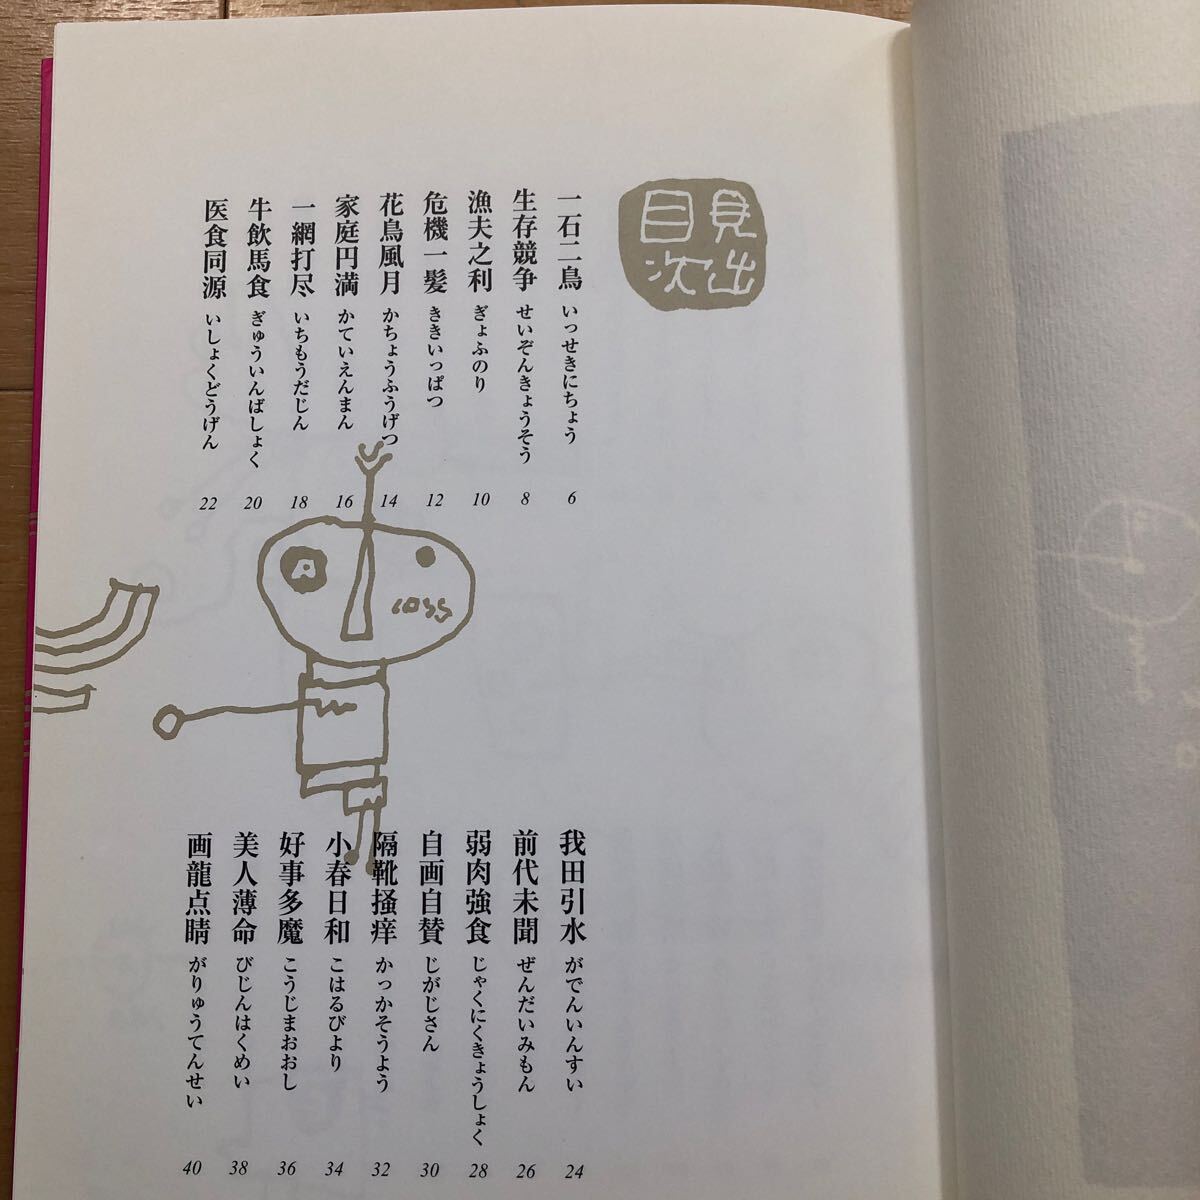 見出
目次
一石二鳥 いっせきにちょう 6
生存競争 せいぞんきょうそう 8
漁夫之利 ぎょふのり 10
危機一髪 ききいっぱつ 12
花鳥風月 かちょうふうげつ 14
家庭円満 かていえんまん 16
一網打尽 いちもうだじん 18
牛飲馬食 ぎゅういんばしょく 20
医食同源 いしょくどうげん 22
我田引水 がでんいんすい 24
前代未聞 ぜんだいみもん 26
弱肉強食 じゃくにくきょうしょく 28
自画自賛 じがじさん 30
隔靴掻痒 かっかそうよう 32
小春日和 こはるびより 34
好事多魔 こうじまおおし 36
美人薄命 びじんはくめい 38
画龍点睛 がりゅうてんせい 40